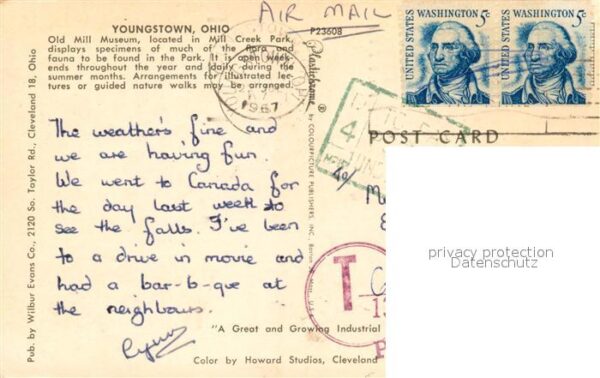 AIR MAIL
YOUNGSTOWN, OHIO
P23608
Old Mill Museum, located in Mill Creek Park,
displays specimens of much of the flora and
fauna to be found in the Park. It is open week-
ends throughout the year and daily during the
summer months. Arrangements for illustrated lec-
tures or guided nature walks may be arranged.
Pub. by Wilbur Evans Co., 2120 So. Taylor Rd., Cleveland 18, Ohio
1967
Plastichrome
by COLOURPICTURE PUBLISHERS, INC., Boston
U.S.A.
UNITED STATES
WASHINGTON 5c
UNITED STATES
WASHINGTON 5c
4
POST CARD
The weather's fine and
we are having fun.
We went to Canada for
the day last week to
see the falls. I've been
to a drive in movie and
had a bar-b-que at
the neighbours.
T
"A Great and Growing Industrial
Color by Howard Studios, Cleveland
privacy protection
Datenschutz